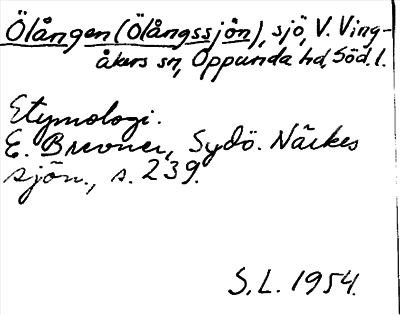 Ölången (Ölångssjön), sjö, V. Ving-
åkers sn, Oppunda hd, Söd. l.
Etymologi.
E. Brevner, Sydö. Närkes
sjön., s. 239.
S.L. 1954.